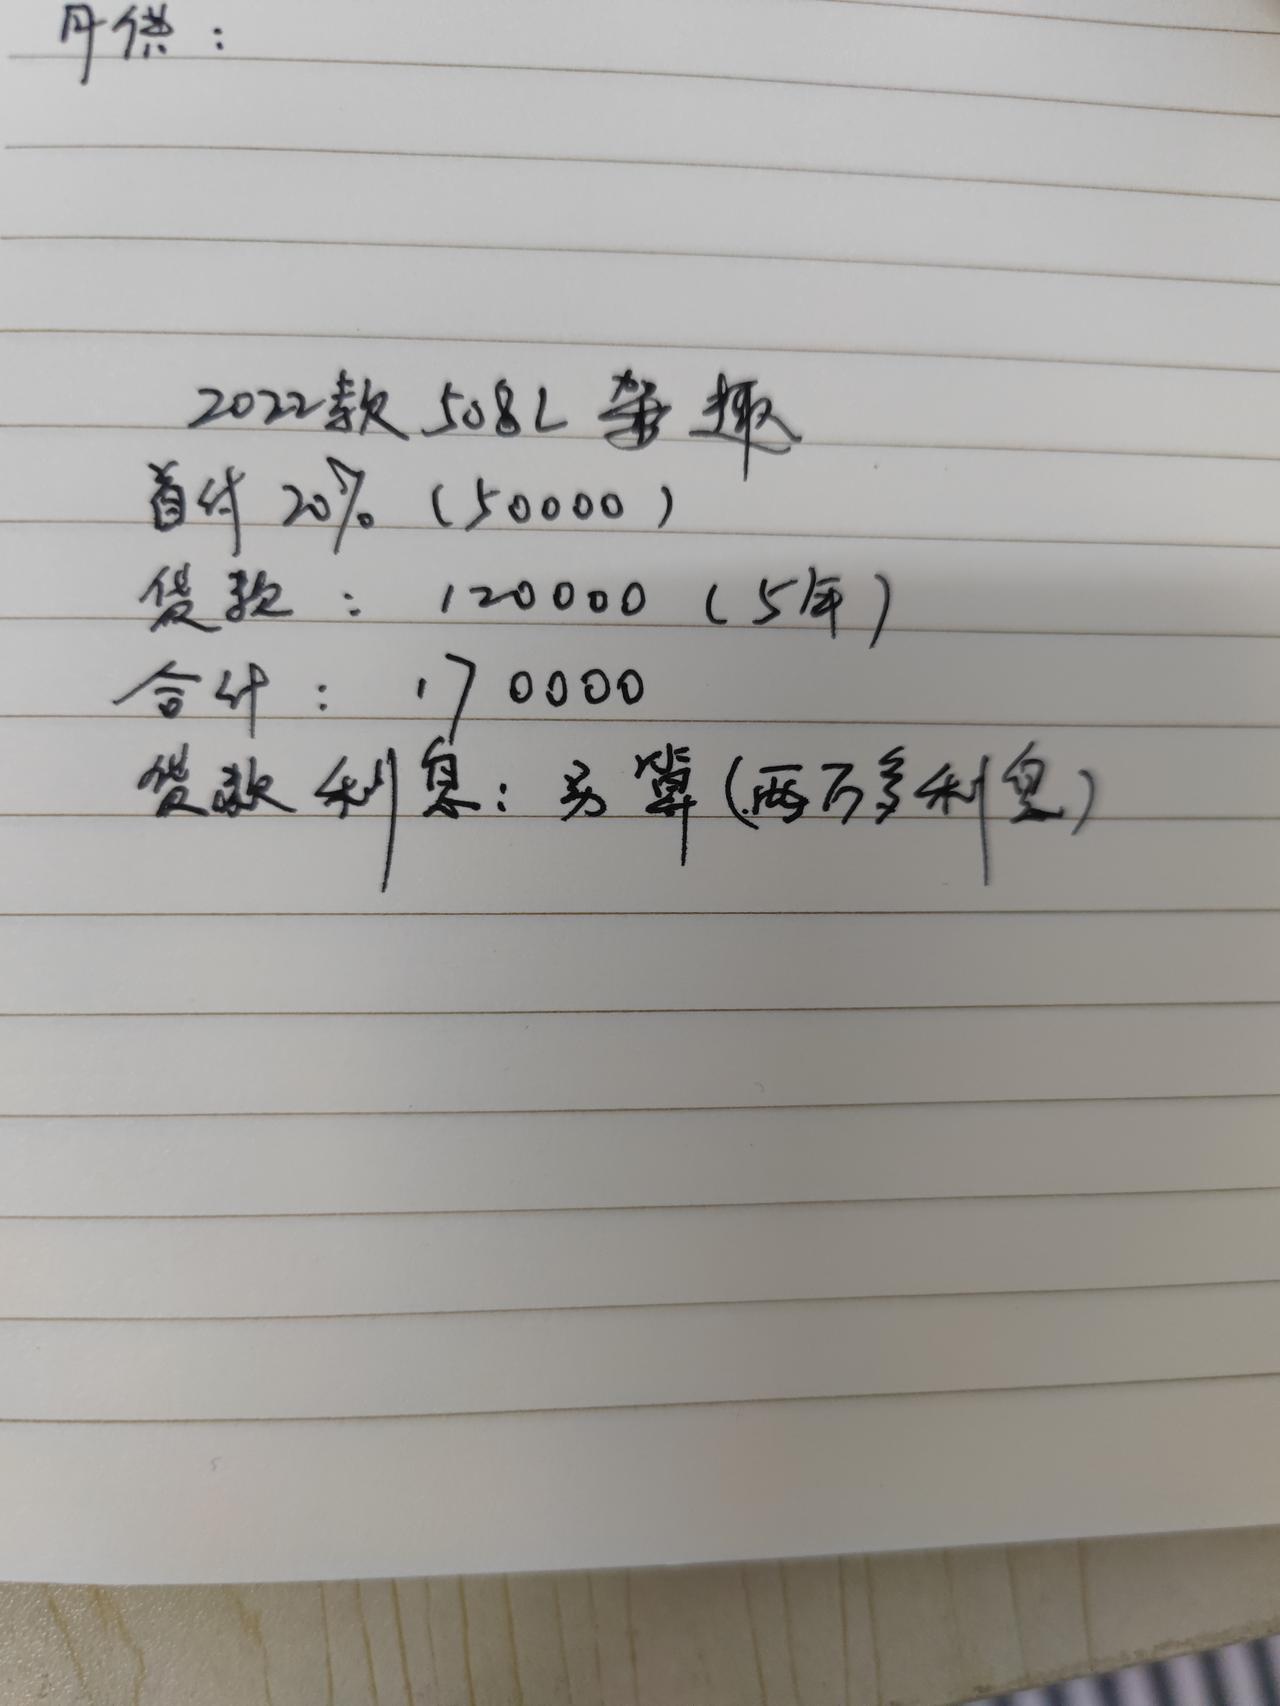 月供：
2022款 508L 驾趣
首付 20% （50000）
贷款： 120000 （5年）
合计： 170000
贷款利息：另算（两万多利息）